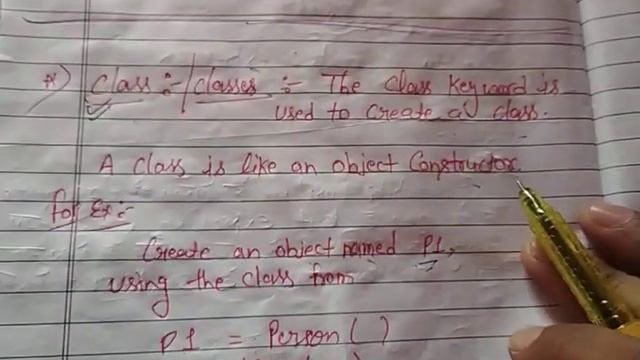 *) Class :-/classes :- The class keyword is
used to create a class.
A class is like an object Constructor.
for Ex:-
Create an object named P1,
using the class from
P1 = Person()